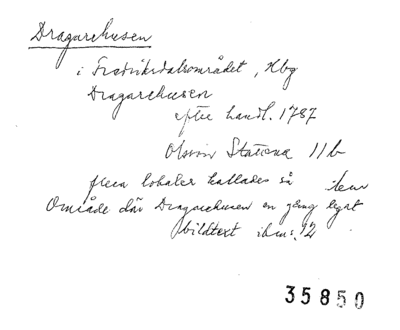 Dragarehusen
i Fredriksdalsområdet, Hbg
Dragarehusen
efter handl. 1787
Olsson Statena 11b
flera lokaler kallades så item
Område där Dragarehusen en gång legat
bildtext ib. s. 12
35850